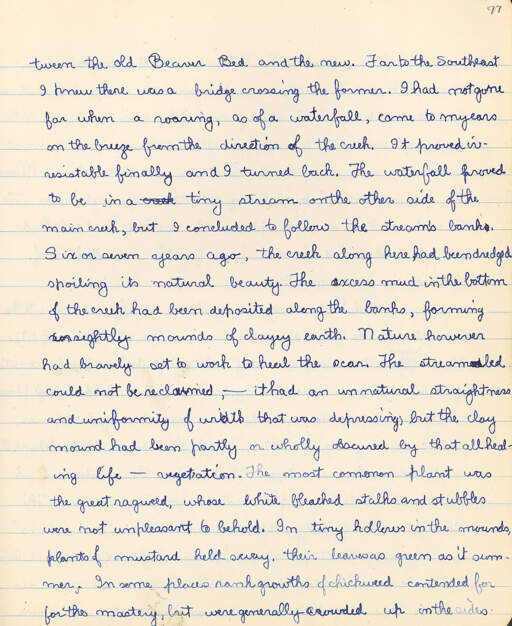 77
tween the old Beaver Bed and the new. Far to the Southeast
I knew there was a bridge crossing the former. I had not gone
far when a roaring, as of a waterfall, came to my ears
on the breeze from the direction of the creek. It proved ir-
resistable finally and I turned back. The waterfall proved
to be in a creek tiny stream on the other side of the
main creek, but I concluded to follow the stream's banks.
Six or seven years ago, the creek along here had been dredged
spoiling its natural beauty. The excess mud in the bottom
of the creek had been deposited along the banks, forming
unsightly mounds of clayey earth. Nature however
had bravely set to work to heal the scar. The stream bed
could not be reclaimed, — it had an unnatural straightness
and uniformity of width that was depressing, but the clay
mound had been partly or wholly obscured by that all heal-
ing life — vegetation. The most common plant was
the great ragweed, whose white bleached stalks and stubbles
were not unpleasant to behold. In tiny hollows in the mounds,
plants of mustard held sway. their leaves as green as if sum-
mer. In some places rank growths of chickweed contended for
for the mastery, but were generally crowded up in the sides.